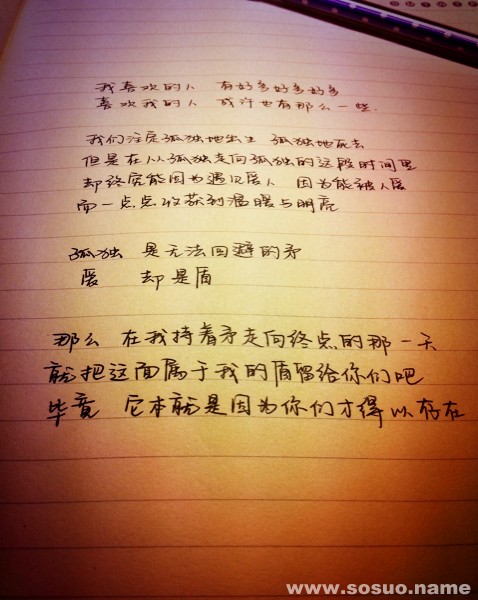 我喜欢的人 有好多好多好多
喜欢我的人 或许也有那么一些.
我们注定孤独地出生 孤独地死去
但是在从孤独走向孤独的这段时间里
却终究能因为遇见爱人 因为能被人爱
而一点点收获到温暖与明亮
孤独 是无法回避的矛
爱 却是盾
那么 在我持着矛走向终点的那一天
就把这面属于我的盾留给你们吧
毕竟 它本就是因为你们才得以存在
www.sosuo.name